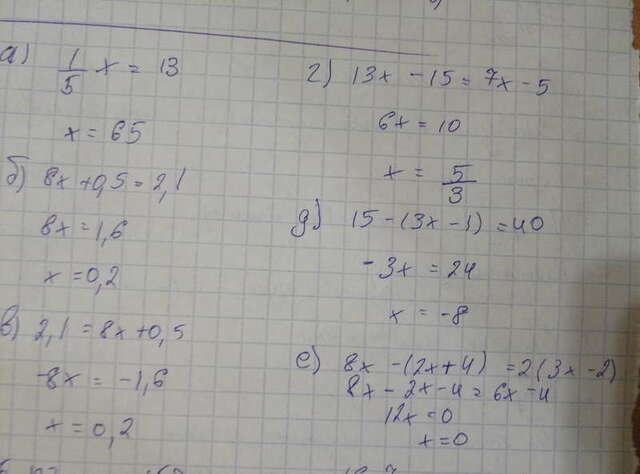 а) 1/5 x = 13
x = 65
б) 8x + 0,5 = 2,1
8x = 1,6
x = 0,2
в) 2,1 = 8x + 0,5
-8x = -1,6
x = 0,2
г) 13x - 15 = 7x - 5
6x = 10
x = 5/3
д) 15 - (3x - 1) = 40
-3x = 24
x = -8
е) 8x - (2x + 4) = 2(3x - 2)
8x - 2x - 4 = 6x - 4
12x = 0
x = 0